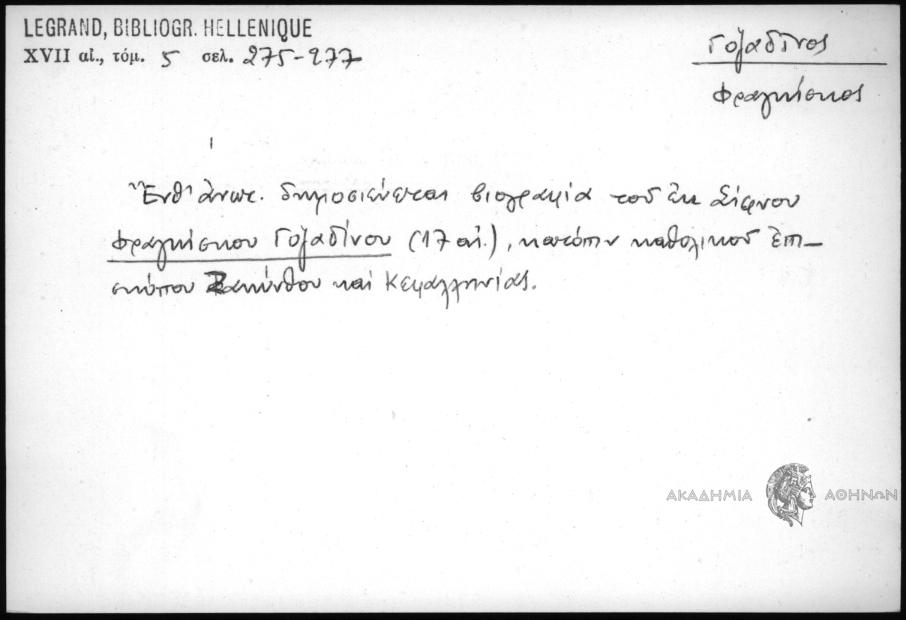 LEGRAND, BIBLIOGR. HELLENIQUE
XVII αἰ., τόμ. 5 σελ. 275-277
Γοζαδῖνος
Φραγκίσκος
Ἔνθ' ἀνωτ. δημοσιεύεται βιογραφία τοῦ ἐκ Σίφνου
Φραγκίσκου Γοζαδίνου (17 αἰ.), κατόπιν καθολικοῦ ἐπι-
σκόπου Ζακύνθου καὶ Κεφαλληνίας.
ΑΚΑΔΗΜΙΑ ΑΘΗΝΩΝ